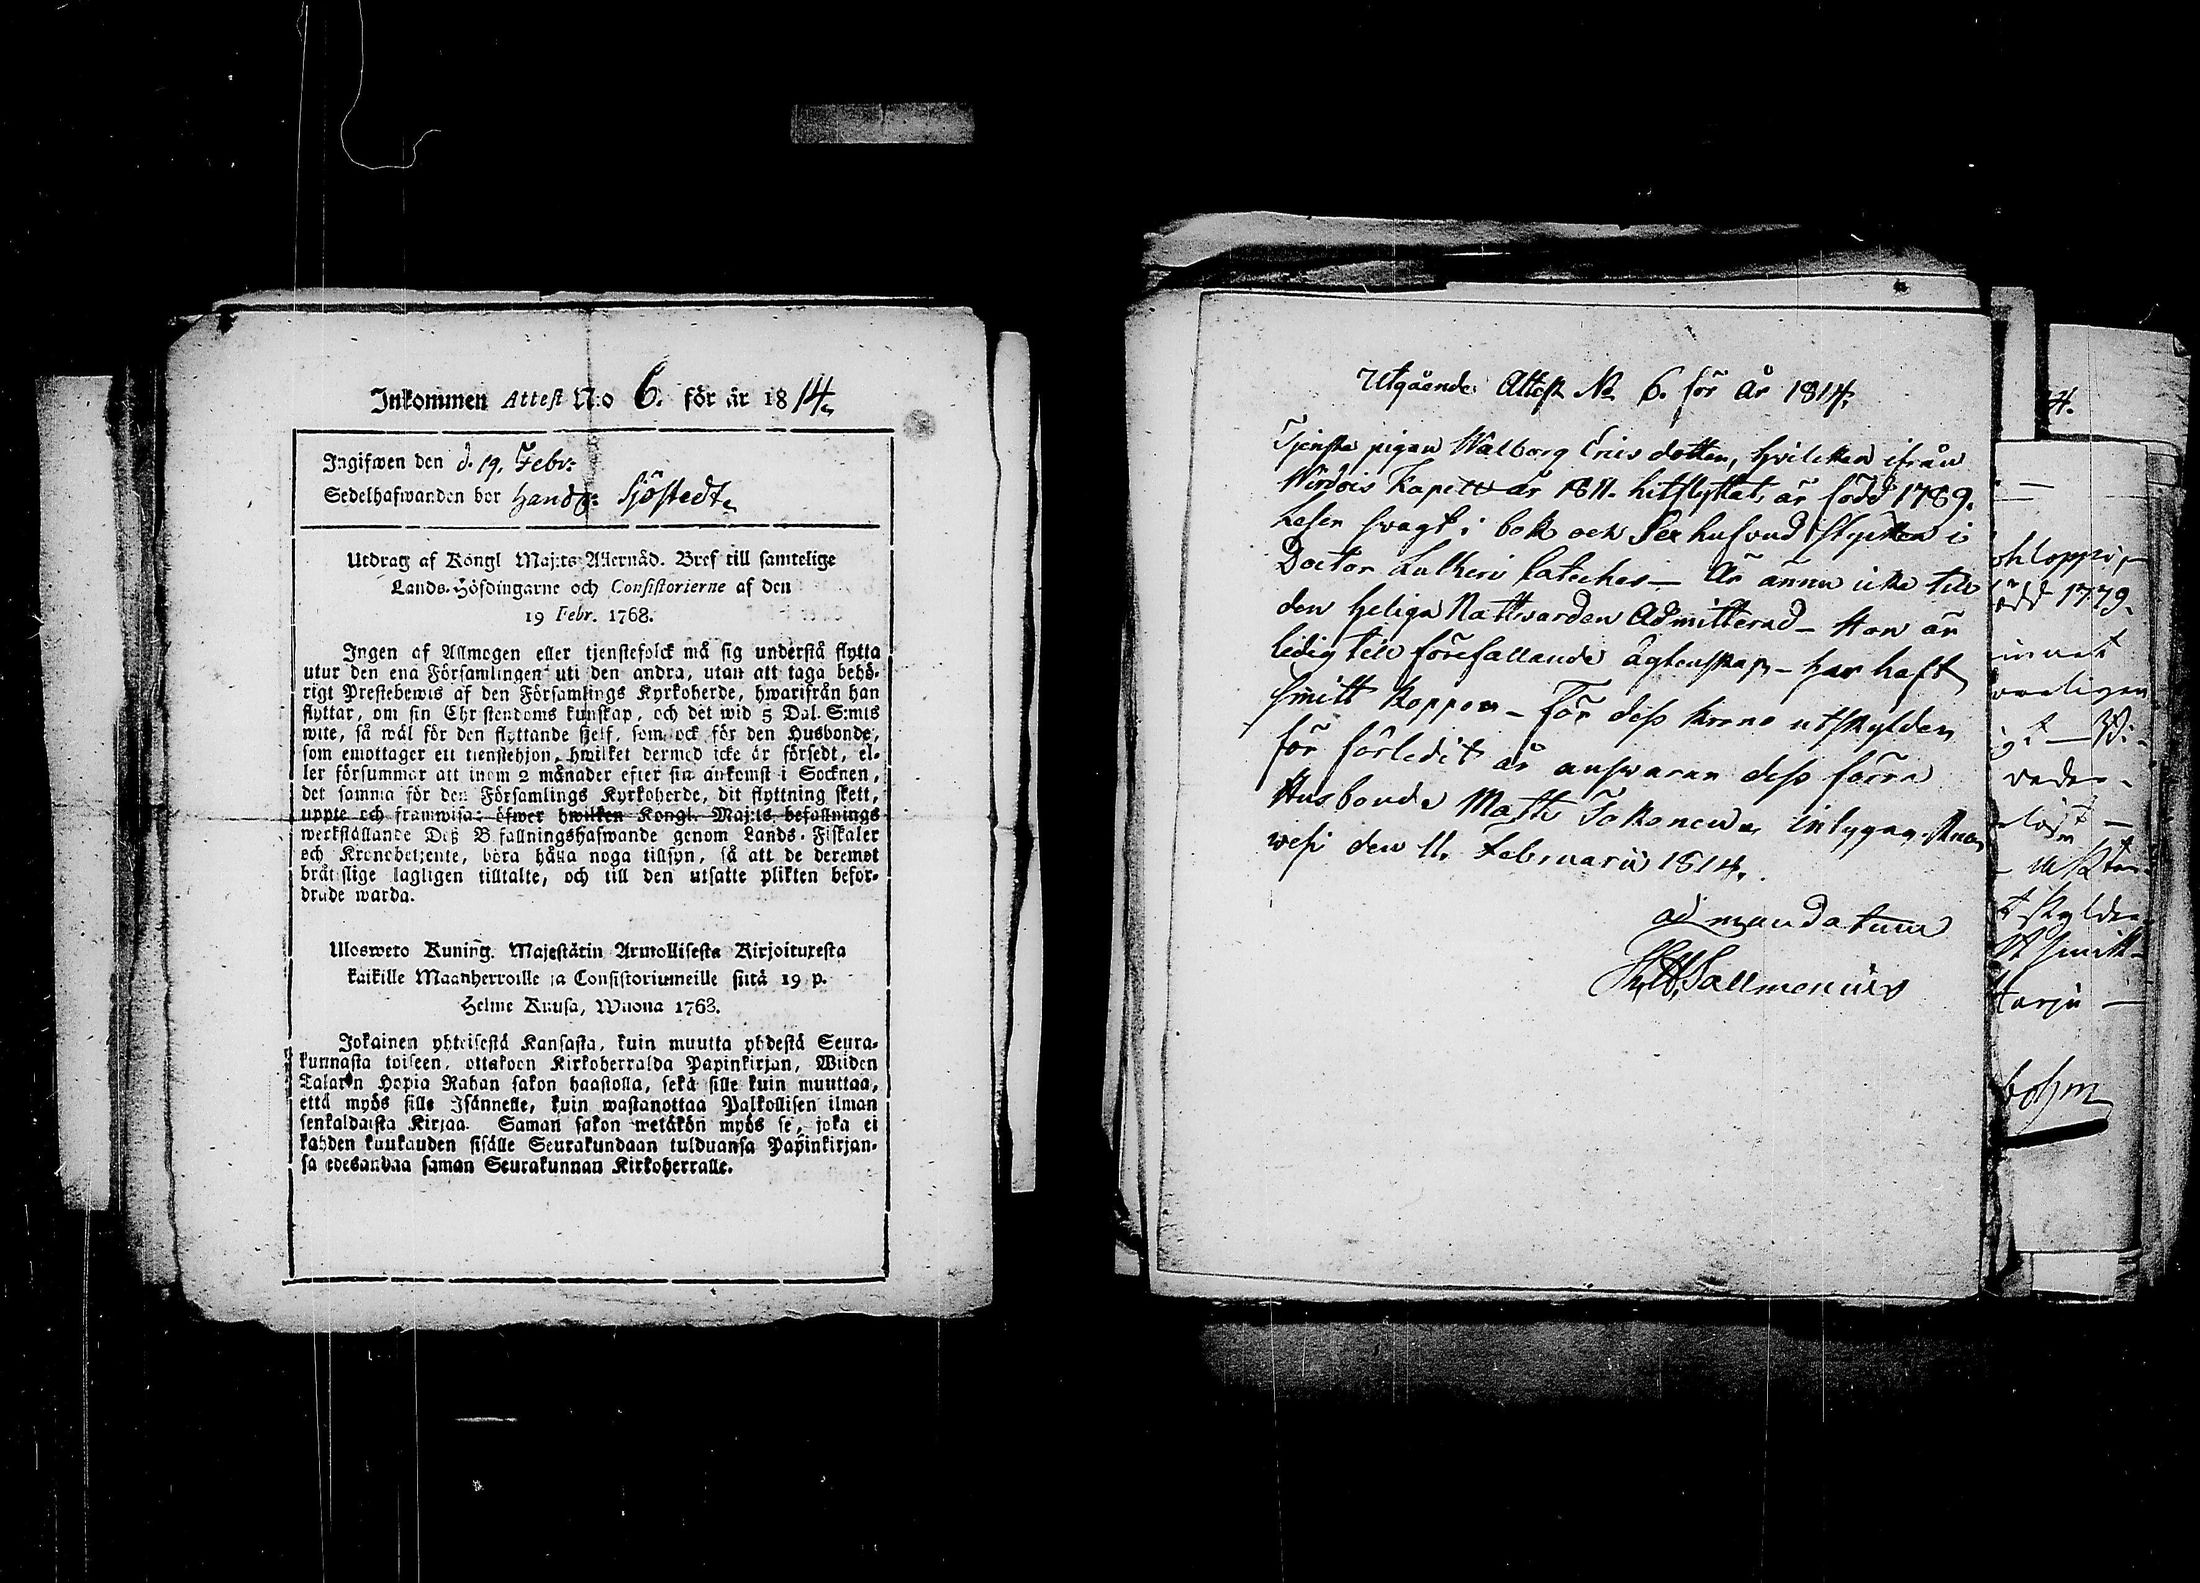 Inkommen Attest N:o 6. för år 1814.
Ingifwen den d. 19. Febr:
Sedelhafwanden bor Handg: Sjöstedt
Utdrag af Kongl Maj:ts Allernåd. Bref till samtelige
Lands-Höfdingarne och Consistorierne af den
19 Febr. 1768.
Ingen af Allmogen eller tjenstefolck må sig understå flytta
utur den ena Församlingen uti den andra, utan att taga behö-
rigt Prestebewis af den Församlings Kyrkoherde, hwarifrån han
flyttar, om sin Christendoms kunskap, och det wid 5 Dal. S:mts
wite, så wäl för den flyttande sjelf, som ock för den Husbonde,
som emottager ett tienstehjon, hwilket dermed icke är försedt, el-
ler försummar att inom 2 månader efter sin ankomst i Socknen,
det samma för den Församlings Kyrkoherde, dit flyttning skett,
uppte och framwisa: öfwer hwilken Kongl. Maj:ts befallnings
werkställande Deß Befallningshafwande genom Lands-Fiskaler
och Kronobetjente, böra hålla noga tillsyn, så att de deremot
brätslige lagligen tilltalte, och till den utsatte plikten befor-
drade warda.
Ulosweto Kuning. Majestätin Armollisesta Kirjoituxesta
kaikille Maanherroille ja Consistoriumeille siitä 19 p.
Helme Kuusa, Wuona 1768.
Jokainen yhteisestä Kansasta, kuin muutta yhdestä Seura-
kunnasta toiseen, ottakoon Kirkoherralda Papinkirjan, Wiiden
Talarin Hopia Rahan sakon haastolla, sekä sille kuin muuttaa,
että myös sille Isännelle, kuin wastanottaa Palkollisen ilman
senkaldaista Kirjaa. Saman sakon wetäkön myös se, joka ei
kahden kuukauden sisälle Seurakundaan tulduansa Papinkirjan-
sa edesandaa saman Seurakunnan Kirkoherralle.
Utgående Attest No 6. för År 1814.
Tjenste pigan Walborg Ericsdotter, hvilcken ifrån
Wirdois Kapell år 1811. hitflyttat, är född 1789.
läser svagt i bok och Sex hufvud stycken i
Doctor Lutheri Cateches — Är ännu icke till
den heliga Nattvarden Admitterad — Hon är
ledig till förefallande ägtenskap, — har haft
smitt koppor — För dess krono utskylder
för förledit år answarar dess förra
Husbonde Matth Tokonen, intygar, Ruo-
wesi den 11. Februarii 1814.
ad mandatum
Sallmenius
4.
född 1779.